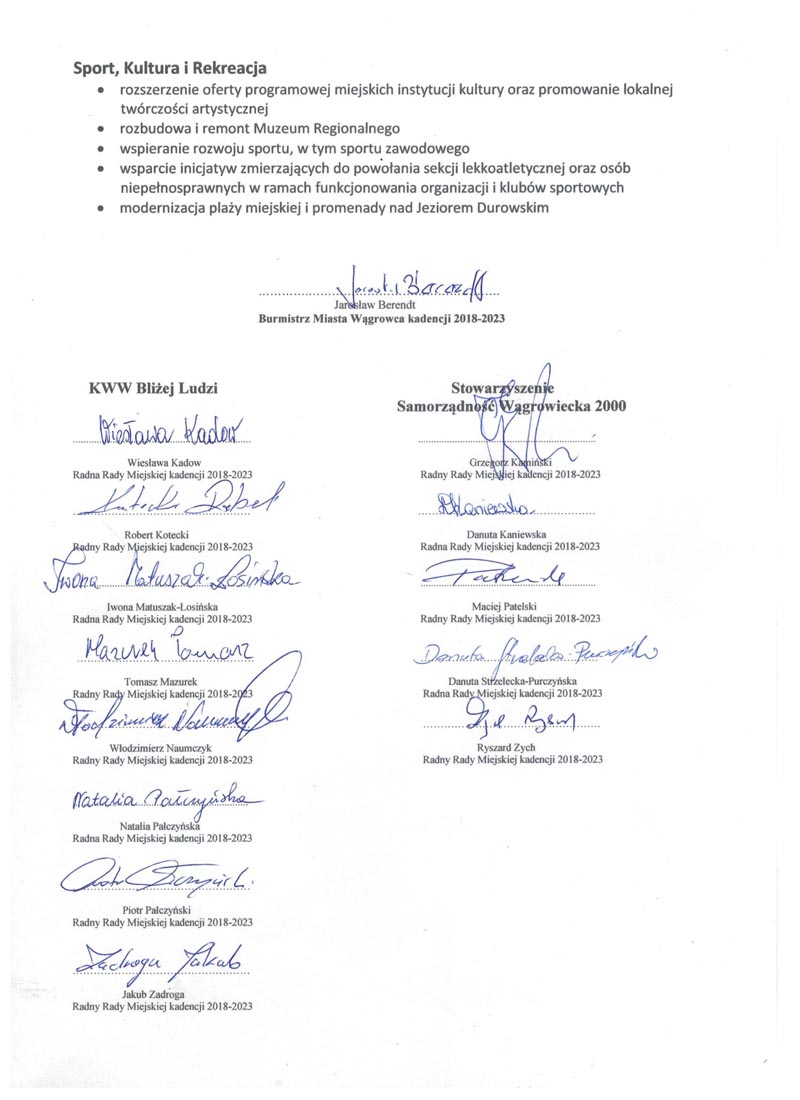 Sport, Kultura i Rekreacja
• rozszerzenie oferty programowej miejskich instytucji kultury oraz promowanie lokalnej
twórczości artystycznej
• rozbudowa i remont Muzeum Regionalnego
• wspieranie rozwoju sportu, w tym sportu zawodowego
• wsparcie inicjatyw zmierzających do powołania sekcji lekkoatletycznej oraz osób
niepełnosprawnych w ramach funkcjonowania organizacji i klubów sportowych
• modernizacja plaży miejskiej i promenady nad Jeziorem Durowskim
Jarosław Berendt
Burmistrz Miasta Wągrowca kadencji 2018-2023
KWW Bliżej Ludzi
Wiesława Kadow
Wiesława Kadow
Radna Rady Miejskiej kadencji 2018-2023
Robert Kotecki
Radny Rady Miejskiej kadencji 2018-2023
Iwona Matuszak-Łosińska
Iwona Matuszak-Łosińska
Radna Rady Miejskiej kadencji 2018-2023
Mazurek Tomasz
Tomasz Mazurek
Radny Rady Miejskiej kadencji 2018-2023
Włodzimierz Naumczyk
Włodzimierz Naumczyk
Radny Rady Miejskiej kadencji 2018-2023
Natalia Pałczyńska
Natalia Pałczyńska
Radna Rady Miejskiej kadencji 2018-2023
Piotr Pałczyński
Radny Rady Miejskiej kadencji 2018-2023
Zadroga Jakub
Jakub Zadroga
Radny Rady Miejskiej kadencji 2018-2023
Stowarzyszenie
Samorządność Wągrowiecka 2000
Grzegorz Kamiński
Radny Rady Miejskiej kadencji 2018-2023
DKaniewska
Danuta Kaniewska
Radna Rady Miejskiej kadencji 2018-2023
Maciej Patelski
Radny Rady Miejskiej kadencji 2018-2023
Danuta Strzelecka-Purczyńska
Danuta Strzelecka-Purczyńska
Radna Rady Miejskiej kadencji 2018-2023
Ryszard Zych
Radny Rady Miejskiej kadencji 2018-2023